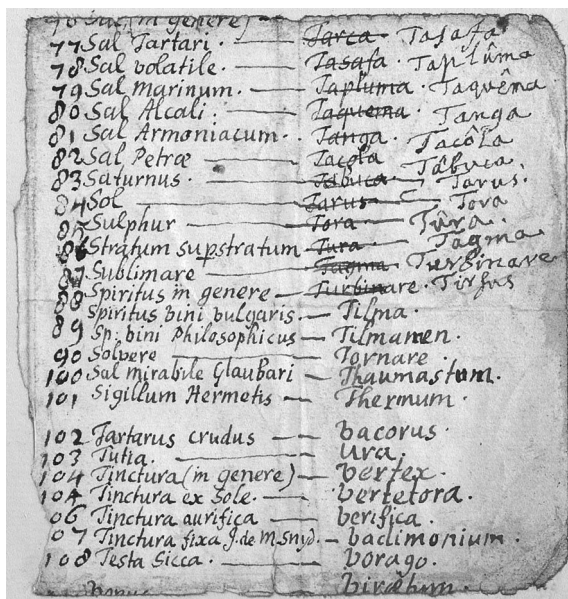 Sal (in genere)
77 Sal Tartari. Tarca Tasafa
78 Sal volatile. Tasafa. Taplûma
79 Sal Marinum. Tapluma. Taquêma
80 Sal Alcali. Taquema Tanga
81 Sal Armoniacum. Tanga. Tacôla
82 Sal Petræ Tacola Tâbuca.
83 Saturnus. Tabuca Tarus.
84 Sol Tarus Tora
85 Sulphur Tora Tûra.
86 Stratum supstratum Tura Tagma
87 Sublimare Tagma Turbinare
88 Spiritus in genere Turbinare. Tirsus
Spiritus vini vulgaris. Tilma.
89 Sp: vini Philosophicus Tilmamen.
90 Solvere Tornare.
100 Sal mirabile Glaubari Thaumastum.
101 Sigillum Hermetis Thermum.
102 Tartarus crudus vacorus.
103 Tutia. Ura.
104 Tinctura (in genere) vertex.
104 Tinctura ex Sole. vertetora.
06 Tinctura aurifica verifica.
07 Tinctura fixa J. de M. Snyd. vadimonium.
108 Testa Sicca. vorago.
viretum.